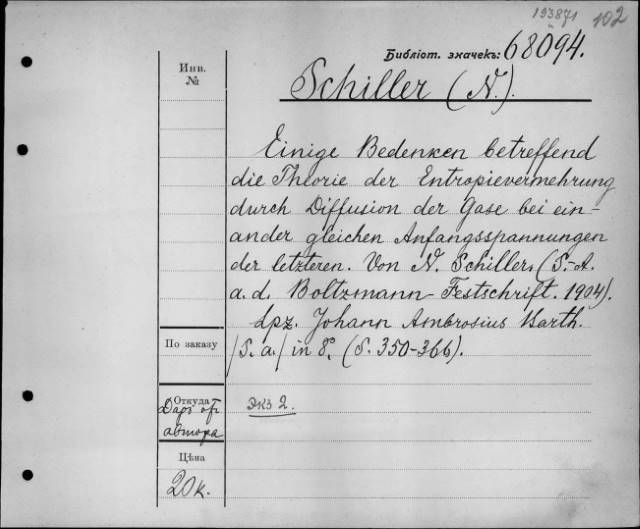 193871
102
Библіот. значекъ: 68094.
Инв.
№
Schiller (N.).
Einige Bedenken betreffend
die Theorie der Entropievermehrung
durch Diffusion der Gase bei ein-
ander gleichen Anfangsspannungen
der letzteren. Von N. Schiller. (S.-A.
a. d. Boltzmann-Festschrift. 1904).
Lpz. Johann Ambrosius Barth.
По заказу
/S. a./ in 8°. (S. 350-366).
Откуда
Даръ от
автора
экз 2.
Цѣна
20к.